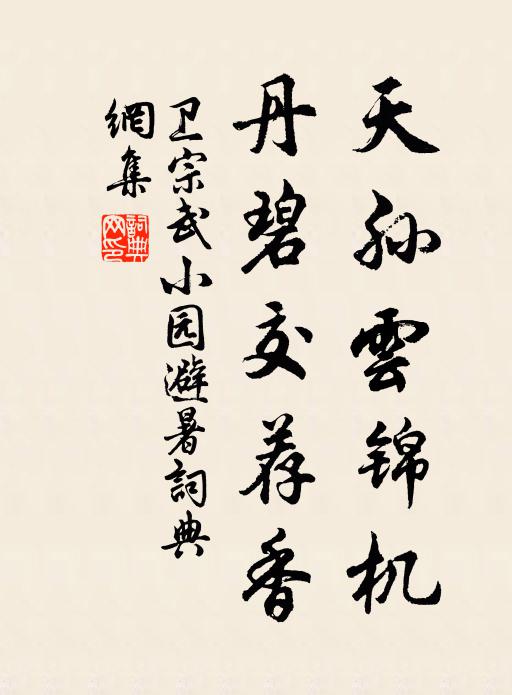 天孙雲锦机
丹碧交荐香
卫宗武小园避暑詞典
網集
詞典
网印